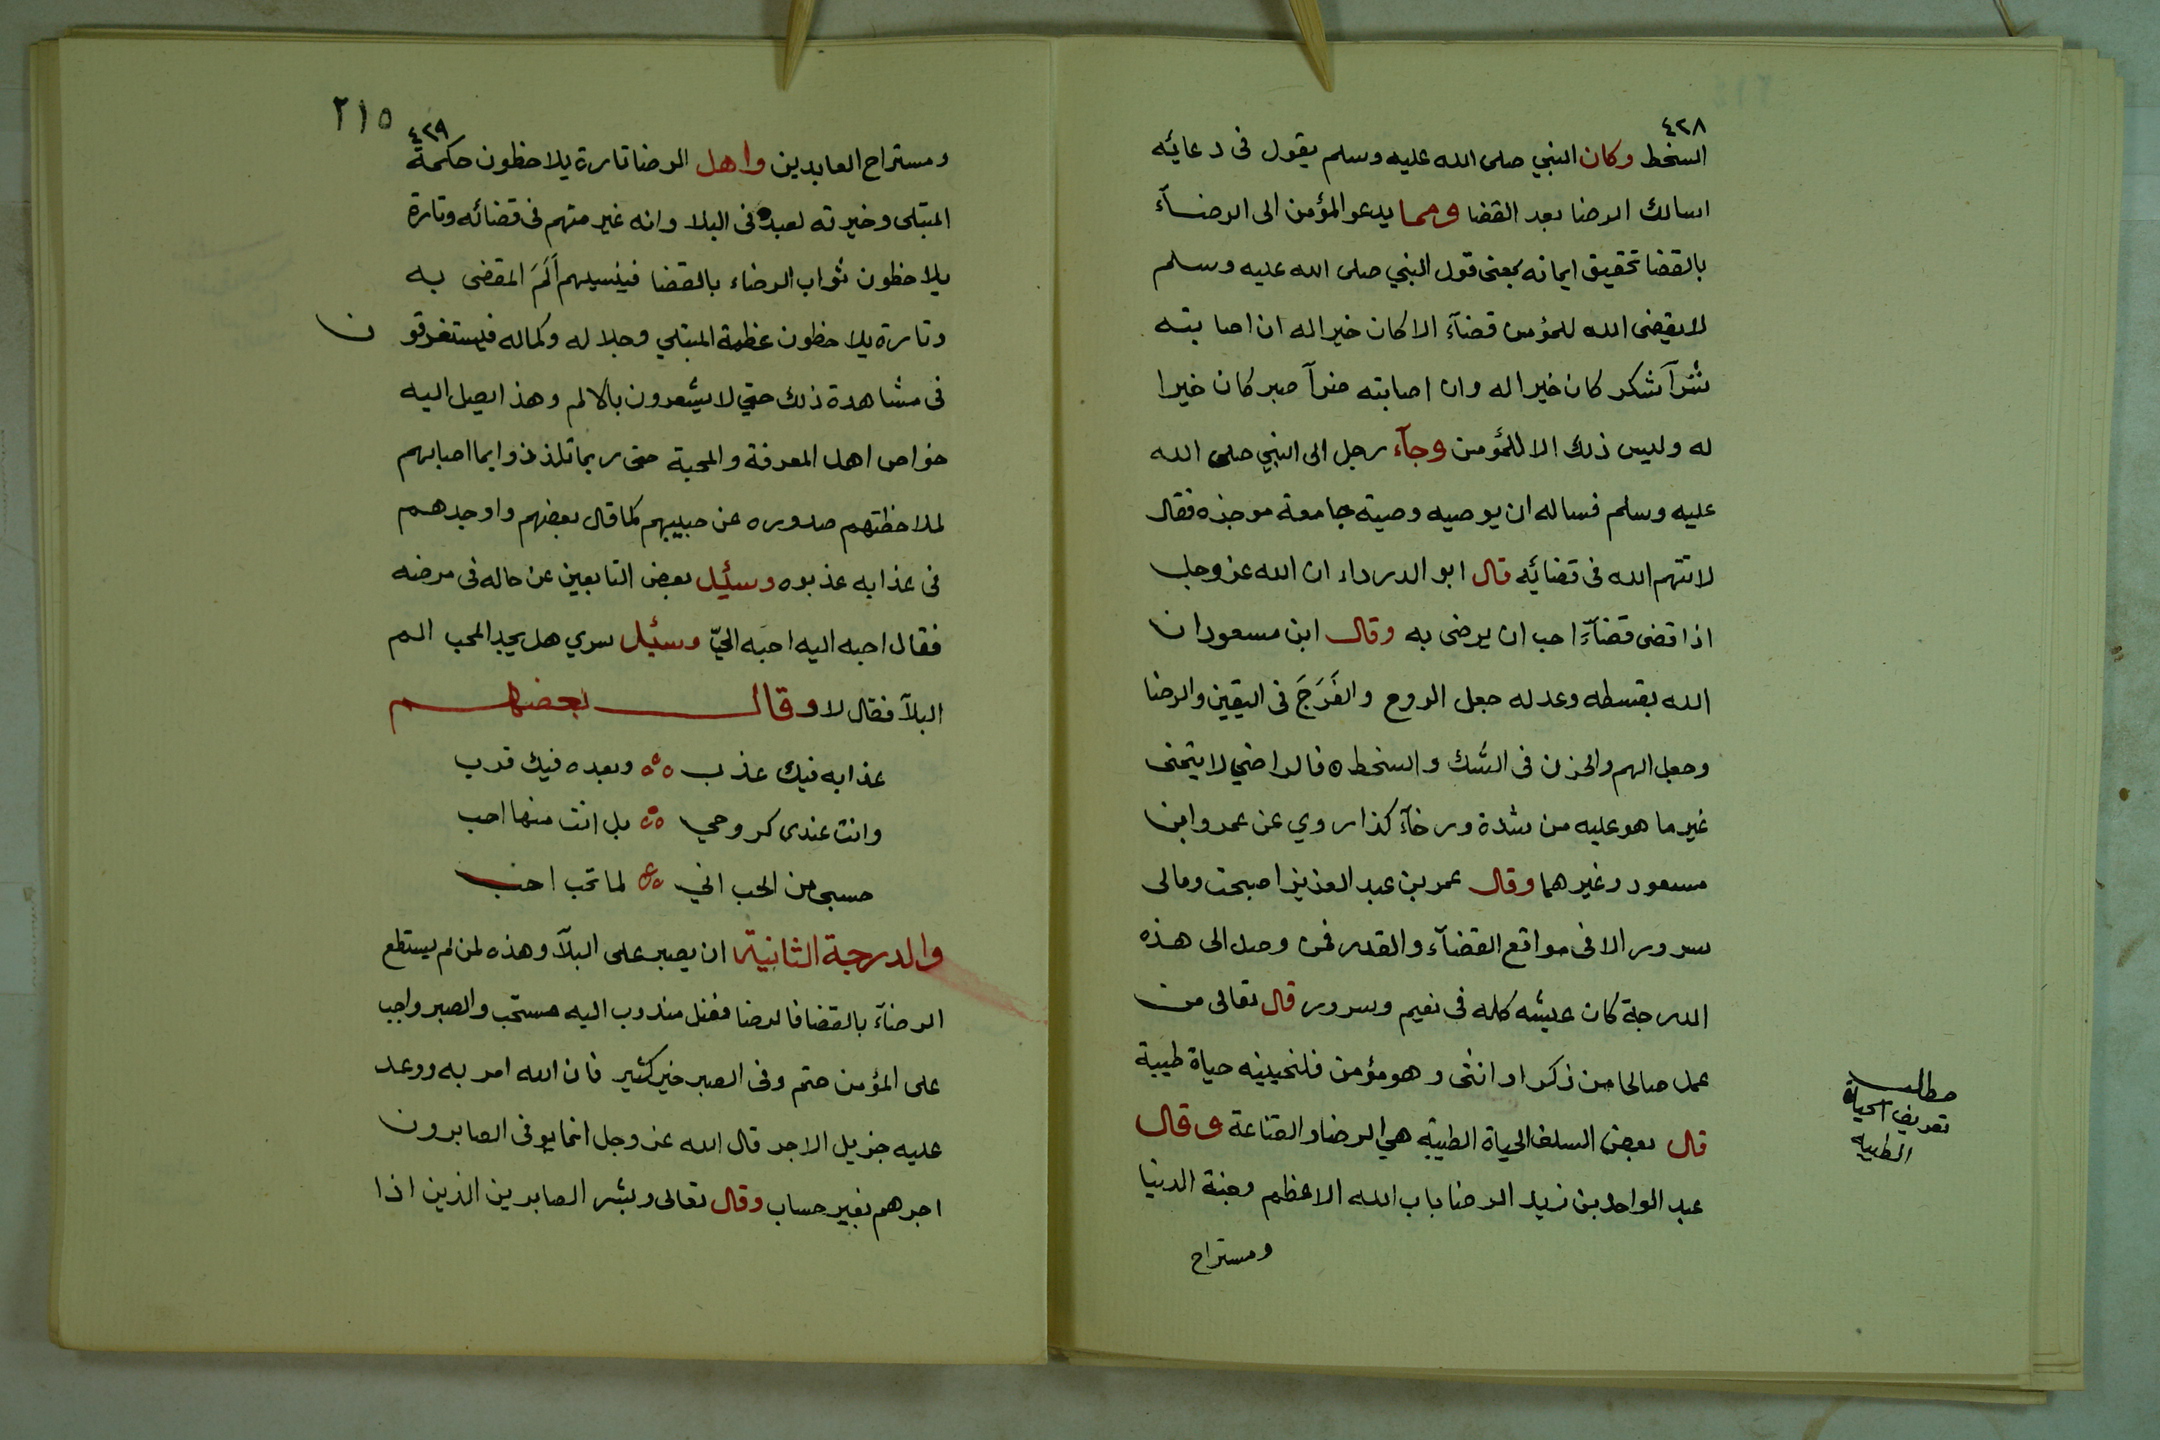 ٤٢٨
السخط وكان النبي صلى الله عليه وسلم يقول فى دعائه
اسالك الرضا بعد القضا ومما يدعو المؤمن الى الرضآء
بالقضا تحقيق ايمانه بمعنى قول النبي صلى الله عليه وسلم
لا يقضى الله للمؤمن قضآء الا كان خيرا له ان اصابته
سَرّآ شكر كان خيرا له وان اصابته ضرآ صبر كان خيرا
له وليس ذلك الا للمؤمن وجآء رجل الى النبي صلى الله
عليه وسلم فساله ان يوصيه وصية جامعة موجزه فقال
لا تتهم الله فى قضائه قال ابو الدرداء ان الله عز وجل
اذا قضى قضآءً احب ان يرضى به وقال ابن مسعود ان
الله بقسطه وعدله جعل الروح والفَرَجَ فى اليقين والرضا
وجعل الهم والحزن فى الشك والسخط ٥ فالراضي لا يتمنى
غير ما هو عليه من شدة ورخآء كذا روي عن عمر وابن
مسعود وغيرهما وقال عمر بن عبد العزيز اصبحت ومالى
سرور الا فى مواقع القضآء والقدر فمن وصل الى هذه
الدرجة كان عيشه كله فى نعيم وسرور قال تعالى من
عمل صالحا من ذكر او انثى وهو مؤمن فلنحيينه حياة طيبة
قال بعض السلف الحياة الطيبة هي الرضا والقناعة وقال
عبد الواحد بن زيد الرضا باب الله الاعظم وجنة الدنيا
ومستراح
مطلب
تعريف الحياة
الطيبه
٢١٥
٤٢٩
ومستراح العابدين واهل الرضا تارة يلاحظون حكمة
المبتلى وخيرته لعبده فى البلا وانه غير متهم فى قضائه وتارة
يلاحظون ثواب الرضاء بالقضا فينسيهم أَلَمَ المقضى به
وتارة يلاحظون عظمة المبتلي وجلاله وكماله فيستغرقون
فى مشاهدة ذلك حتي لا يشعرون بالالم وهذا يصل اليه
خواص اهل المعرفة والمحبة حتى ربما تلذذوا بما اصابهم
لملاحظتهم صدوره عن حبيبهم كما قال بعضهم واوجدهم
فى عذابه عذبوه وسئيل بعض التابعين عن حاله فى مرضه
فقال احبه اليه احبَه الىّ وسئيل سري هل يجد المحب الم
البلآ فقال لا وقال بعضهم
عذابه فيك عذب ؞ وبعده فيك قرب
وانت عندى كروحي ؞ بل انت منها احب
حسبى من الحب اني ؞ لما تحب احب
والدرجة الثانية ان يصبر على البلآ وهذه لمن لم يستطع
الرضآء بالقضا فالرضا فضل مندوب اليه مستحب والصبر واجب
على المؤمن حتم وفى الصبر خير كثير فان الله امر به ووعد
عليه جزيل الاجر قال الله عز وجل انما يوفى الصابرون
اجرهم بغير حساب وقال تعالى وبشر الصابرين الذين اذا